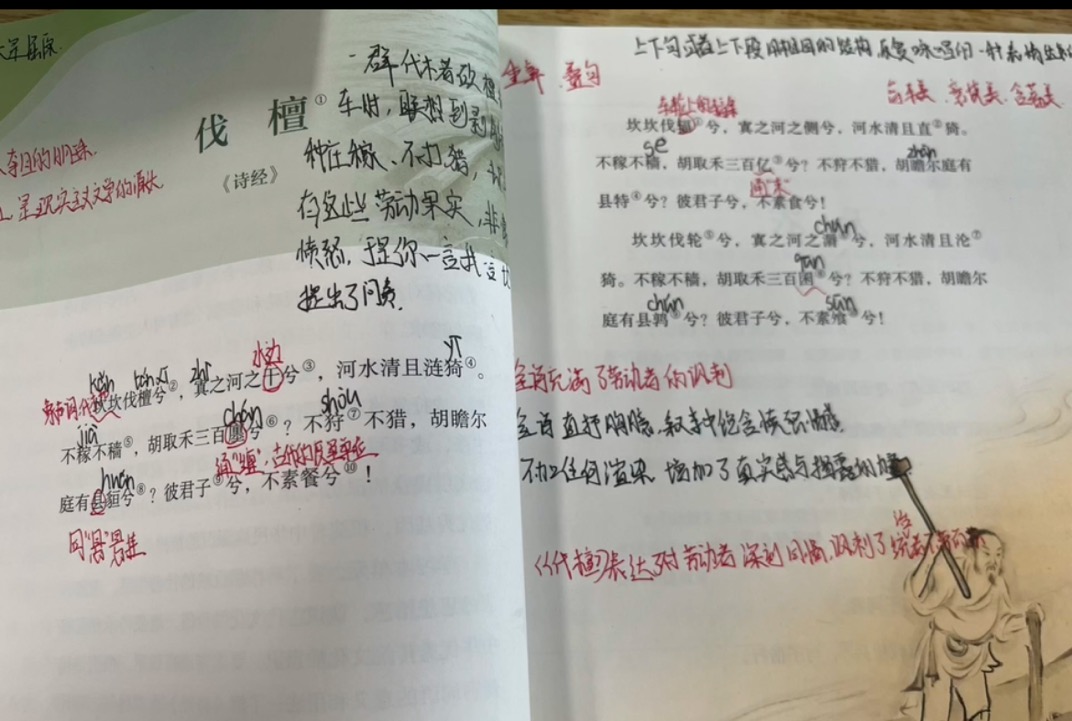 伐 檀①
《诗经》
一群伐木者砍檀
车时,联想到剥
种庄稼、不打猎,
在这些劳动果实,非
愤怒,于是你一言我一言
提出了问责.
水边
kǎn tán xī zhì yī
坎坎伐檀兮②,寘之河之干兮③,河水清且涟猗④。
jià chán shòu
不稼不穑⑤,胡取禾三百廛兮⑥?不狩⑦不猎,胡瞻尔
通"缠",古代的
huán
庭有县貆兮⑧?彼君子⑨兮,不素餐兮⑩!
同"悬"悬挂
上下句或者上下段用相同的结构反复咏唱的一种表情达
叠句
坎坎伐辐①兮,寘之河之侧兮,河水清且直②猗。
sè zhān
不稼不穑,胡取禾三百亿③兮?不狩不猎,胡瞻尔庭有
县特④兮?彼君子兮,不素食兮!
chún
坎坎伐轮⑤兮,寘之河之漘⑥兮,河水清且沦⑦
qūn
猗。不稼不穑,胡取禾三百囷⑧兮?不狩不猎,胡瞻尔
chún sūn
庭有县鹑⑨兮?彼君子兮,不素飧⑩兮!
全诗充满了劳动者的讽刺
全诗直抒胸臆,叙事中饱含愤怒情感
不加任何渲染,增加了真实感与揭露的力量
《伐檀》表达了对劳动者深刻同情,讽刺了